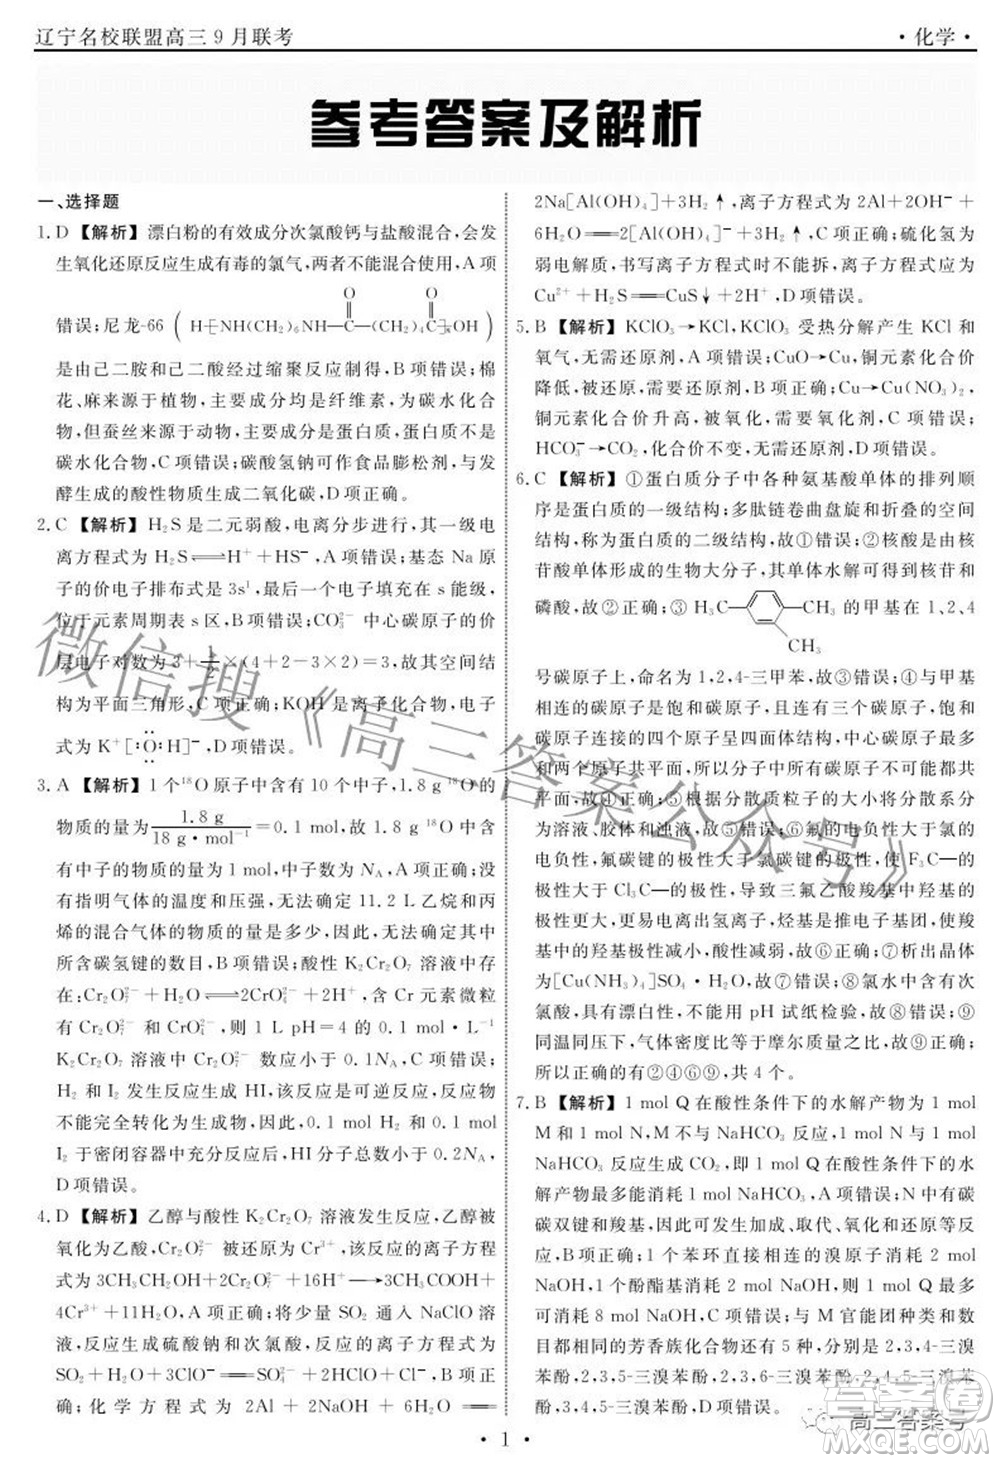 辽宁名校联盟高三9月联考
·化学·
参考答案及解析
一、选择题
1.D【解析】漂白粉的有效成分次氯酸钙与盐酸混合,会发
生氧化还原反应生成有毒的氯气,两者不能混合使用,A项
错误;尼龙-66(H⁅NH(CH₂)₆NH—C(=O)(CH₂)₄C(=O)⁆OH)
是由己二胺和己二酸通过缩聚反应制得,B项错误;棉
花、麻来源于植物,主要成分是纤维素,为碳水化合
物,但蚕丝来源于动物,主要成分是蛋白质,蛋白质不是
碳水化合物,C项错误;碳酸氢钠可作食品膨松剂,与发
酵生成的酸性物质生成二氧化碳,D项正确。
2.C【解析】H₂S是二元弱酸,电离分步进行,其一级电
离方程式为H₂S⇌H⁺+HS⁻,A项错误;基态Na原
子的价电子排布式是3s¹,最后一个电子填充在s能级,
位于元素周期表s区,B项错误;CO₃²⁻中心碳原子的价
层电子对数为3+1/2×(4+2-3×2)=3,故其空间结
构为平面三角形,C项正确;KOH是离子化合物,电子
式为K⁺[:Ö:H]⁻,D项错误。
3.A【解析】1个¹⁸O原子中含有10个中子,1.8g的
物质的量为1.8 g/18 g·mol⁻¹=0.1 mol,故1.8 g ¹⁸O中含
有中子的物质的量为1 mol,中子数为N_A,A项正确;未
指明气体的温度和压强,无法计算11.2 L乙烷和丙
烯的混合气体的物质的量是多少,因此,无法确定其含
有碳氢键的数目,B项错误;酸性K₂Cr₂O₇溶液中存
在:Cr₂O₇²⁻+H₂O⇌2CrO₄²⁻+2H⁺,含Cr元素微粒
有Cr₂O₇²⁻和CrO₄²⁻,则1 L pH=4的0.1 mol·L⁻¹
K₂Cr₂O₇溶液中Cr₂O₇²⁻数应小于0.1N_A,C项错误;
H₂和I₂发生反应生成HI,该反应是可逆反应,反应物不
能完全转化为生成物,则0.1 mol H₂和0.1 mol
I₂于密闭容器中充分反应后,HI分子总数小于0.2N_A,
D项错误。
4.D【解析】乙醇与酸性K₂Cr₂O₇溶液发生反应,乙醇被
氧化为乙酸,Cr₂O₇²⁻被还原为Cr³⁺,该反应的离子方程
式为3CH₃CH₂OH+2Cr₂O₇²⁻+16H⁺→3CH₃COOH+
4Cr³⁺+11H₂O,A项正确;将少量SO₂通入NaClO溶
液,反应生成硫酸钠和次氯酸,反应的离子方程式为
SO₂+H₂O+3ClO⁻══SO₄²⁻+Cl⁻+2HClO,B项正
确;化学方程式为2Al+2NaOH+6H₂O══
2Na[Al(OH)₄]+3H₂↑,离子方程式为2Al+2OH⁻+
6H₂O══2[Al(OH)₄]⁻+3H₂↑,C项正确;硫化氢为
弱电解质,书写离子方程式时不能拆,离子方程式应为
Cu²⁺+H₂S══CuS↓+2H⁺,D项错误。
5.B【解析】KClO₃→KCl,KClO₃受热分解产生KCl和
氧气,无需还原剂,A项错误;CuO→Cu,铜元素化合价
降低,被还原,需要加还原剂,B项正确;Cu→Cu(NO₃)₂,
铜元素化合价升高,被氧化,需要氧化剂,C项错误;
HCO₃⁻→CO₂,化合价不变,无需还原剂,D项错误。
6.C【解析】①蛋白质分子中各种氨基酸单体的排列顺
序,是蛋白质的一级结构;多肽链卷曲盘旋和折叠的空间
结构,称为蛋白质的二级结构,故①错误;②核酸是由核
苷酸单体形成的生物大分子,其单体水解可得到核苷和
磷酸,故②正确;③H₃C—CH₃ CH₃的甲基在1、2、4
号碳原子上,命名为1,2,4-三甲苯,故③错误;与甲基
相连的碳原子是饱和碳原子,和甲基相连的碳原子、饱和
碳原子与周围4个原子呈四面体结构,因此最多
两个原子共平面,所以该分子中所有碳原子不可能都
共平面,故④错误;⑤根据分散质粒子的大小将分散系分
为溶液、胶体和浊液,故⑤错误;⑥氟的电负性大于氯的
电负性,氟碳键的极性大于氯碳键的极性,使F₃C—的
极性大于Cl₃C—的极性,导致三氟乙酸羧基中羟基的
极性更大,更易电离出氢离子,烃基是推电子基团,使羧
基中的羟基极性减小,酸性减弱,故⑥正确;⑦析出晶体
[Cu(NH₃)₄]SO₄·H₂O,故⑦错误;⑧氯水中含次
氯酸,具有漂白性,不能用pH试纸检验,故⑧错误;⑨
同温同压下,气体密度比等于摩尔质量之比,故⑨正确。
所以正确的有②④⑥⑨,共4个。
7.B【解析】1 mol Q在酸性条件下的水解产物为1 mol
M和1 mol N,M不能与NaHCO₃反应,1 mol N与1 mol
NaHCO₃反应生成CO₂,即1 mol Q在酸性条件下的水
解产物最多能消耗1 mol NaHCO₃,A项错误;N含有碳
碳双键、羧基、苯环,因此可发生加成、取代、氧化和还原等反应,
B项正确;1个苯环直接相连的溴原子消耗2 mol
NaOH,1个酚酯基消耗2 mol NaOH,则1 mol Q最多
可消耗8 mol NaOH,C项错误;与M官能团种类和数
目都相同的芳香族化合物一共有5种,分别是2,3,4-三溴
苯酚,2,3,5-三溴苯酚,2,3,6-三溴苯酚,2,4,5-三溴苯
酚,3,4,5-三溴苯酚,D项错误。
·1·
微信搜《高三答案公众号》
高三答案号
答案圈
MXQE.COM